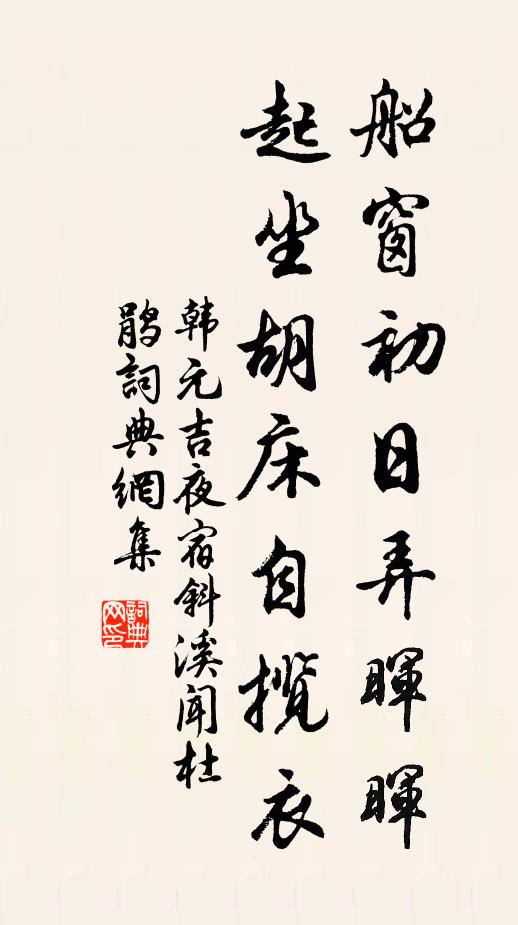 船窗初日弄暉暉
起坐胡床自揽衣
韩元吉夜宿斜溪闻杜
鹃詞典網集
詞典網印